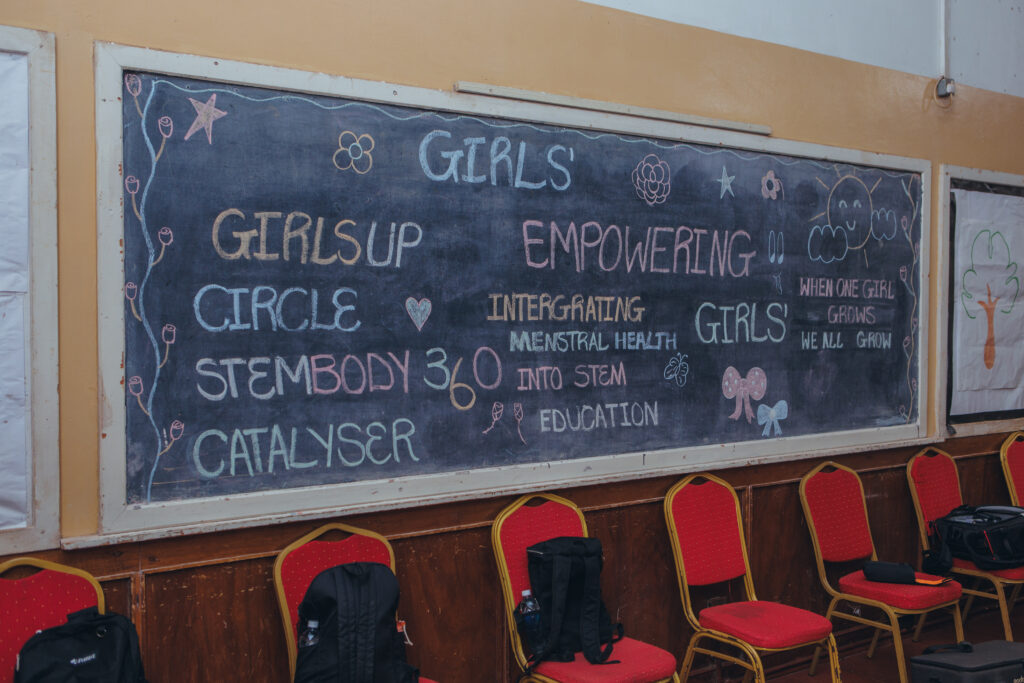 GIRLS'
GIRLS UP
CIRCLE
STEMBODY 360
CATALYSER
EMPOWERING
INTERGRATING
MENSTRAL HEALTH
INTO STEM
EDUCATION
GIRLS'
WHEN ONE GIRL
GROWS
WE ALL GROW